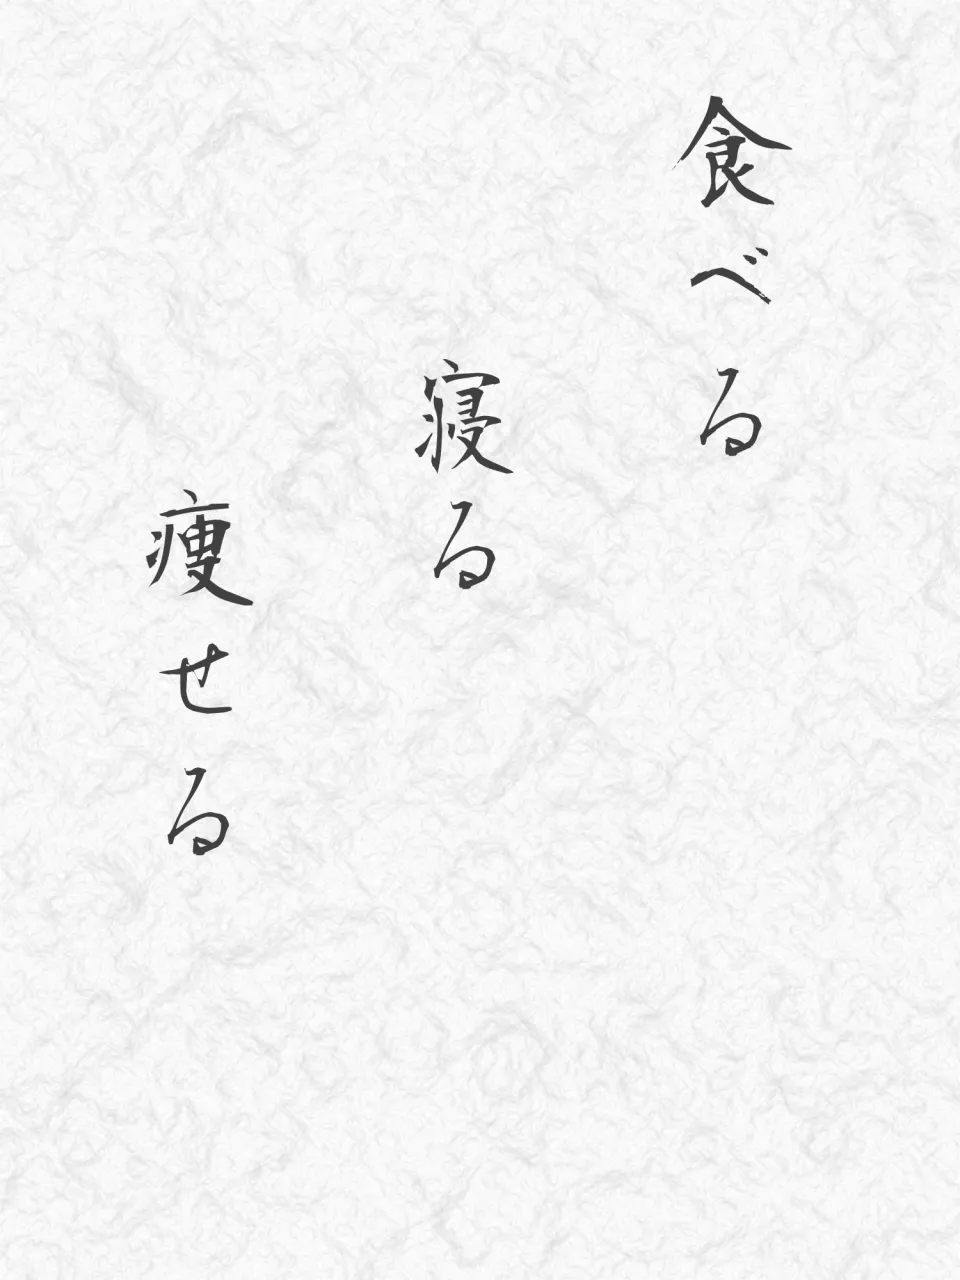 食べる
寝る
痩せる